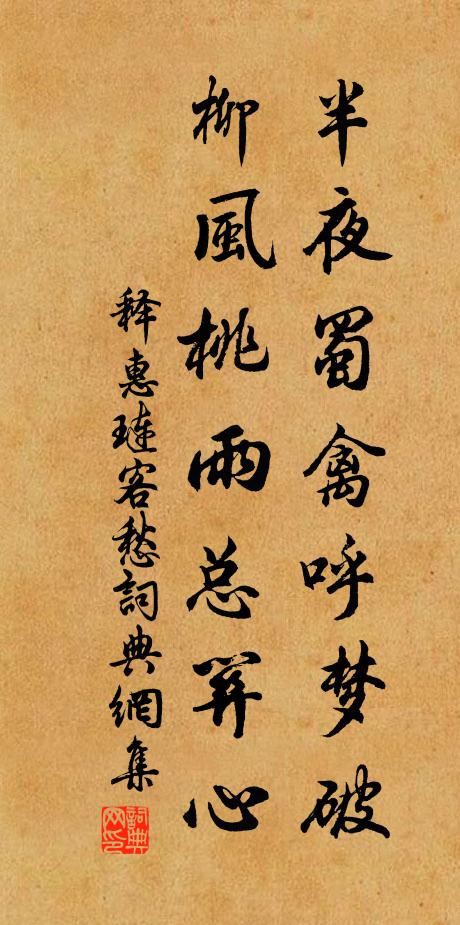 半夜蜀禽呼梦破
柳風桃雨总关心
释惠琏客愁詞典網集
詞典网印